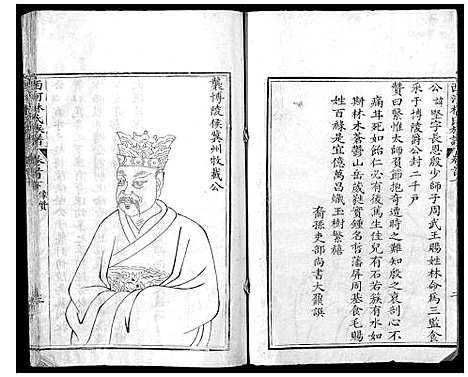 公諱堅字長恩殷少師子周武王賜姓林命為三監食
采于博陵爵公封二千戶
贊曰繄惟太師貞節抱奇遭時之難知殷之衰剖心不
痛甘死如飴仁必有後篤生佳兒有石若簇有水如
斯林木蒼鬱山岳巍實鍾名哲藩屏周基食毛賜
姓百祿是宜億萬昌熾玉樹繁禧
裔孫吏部尚書大
襲博陵侯冀州牧載公
西河林氏族譜
卷首
像贊